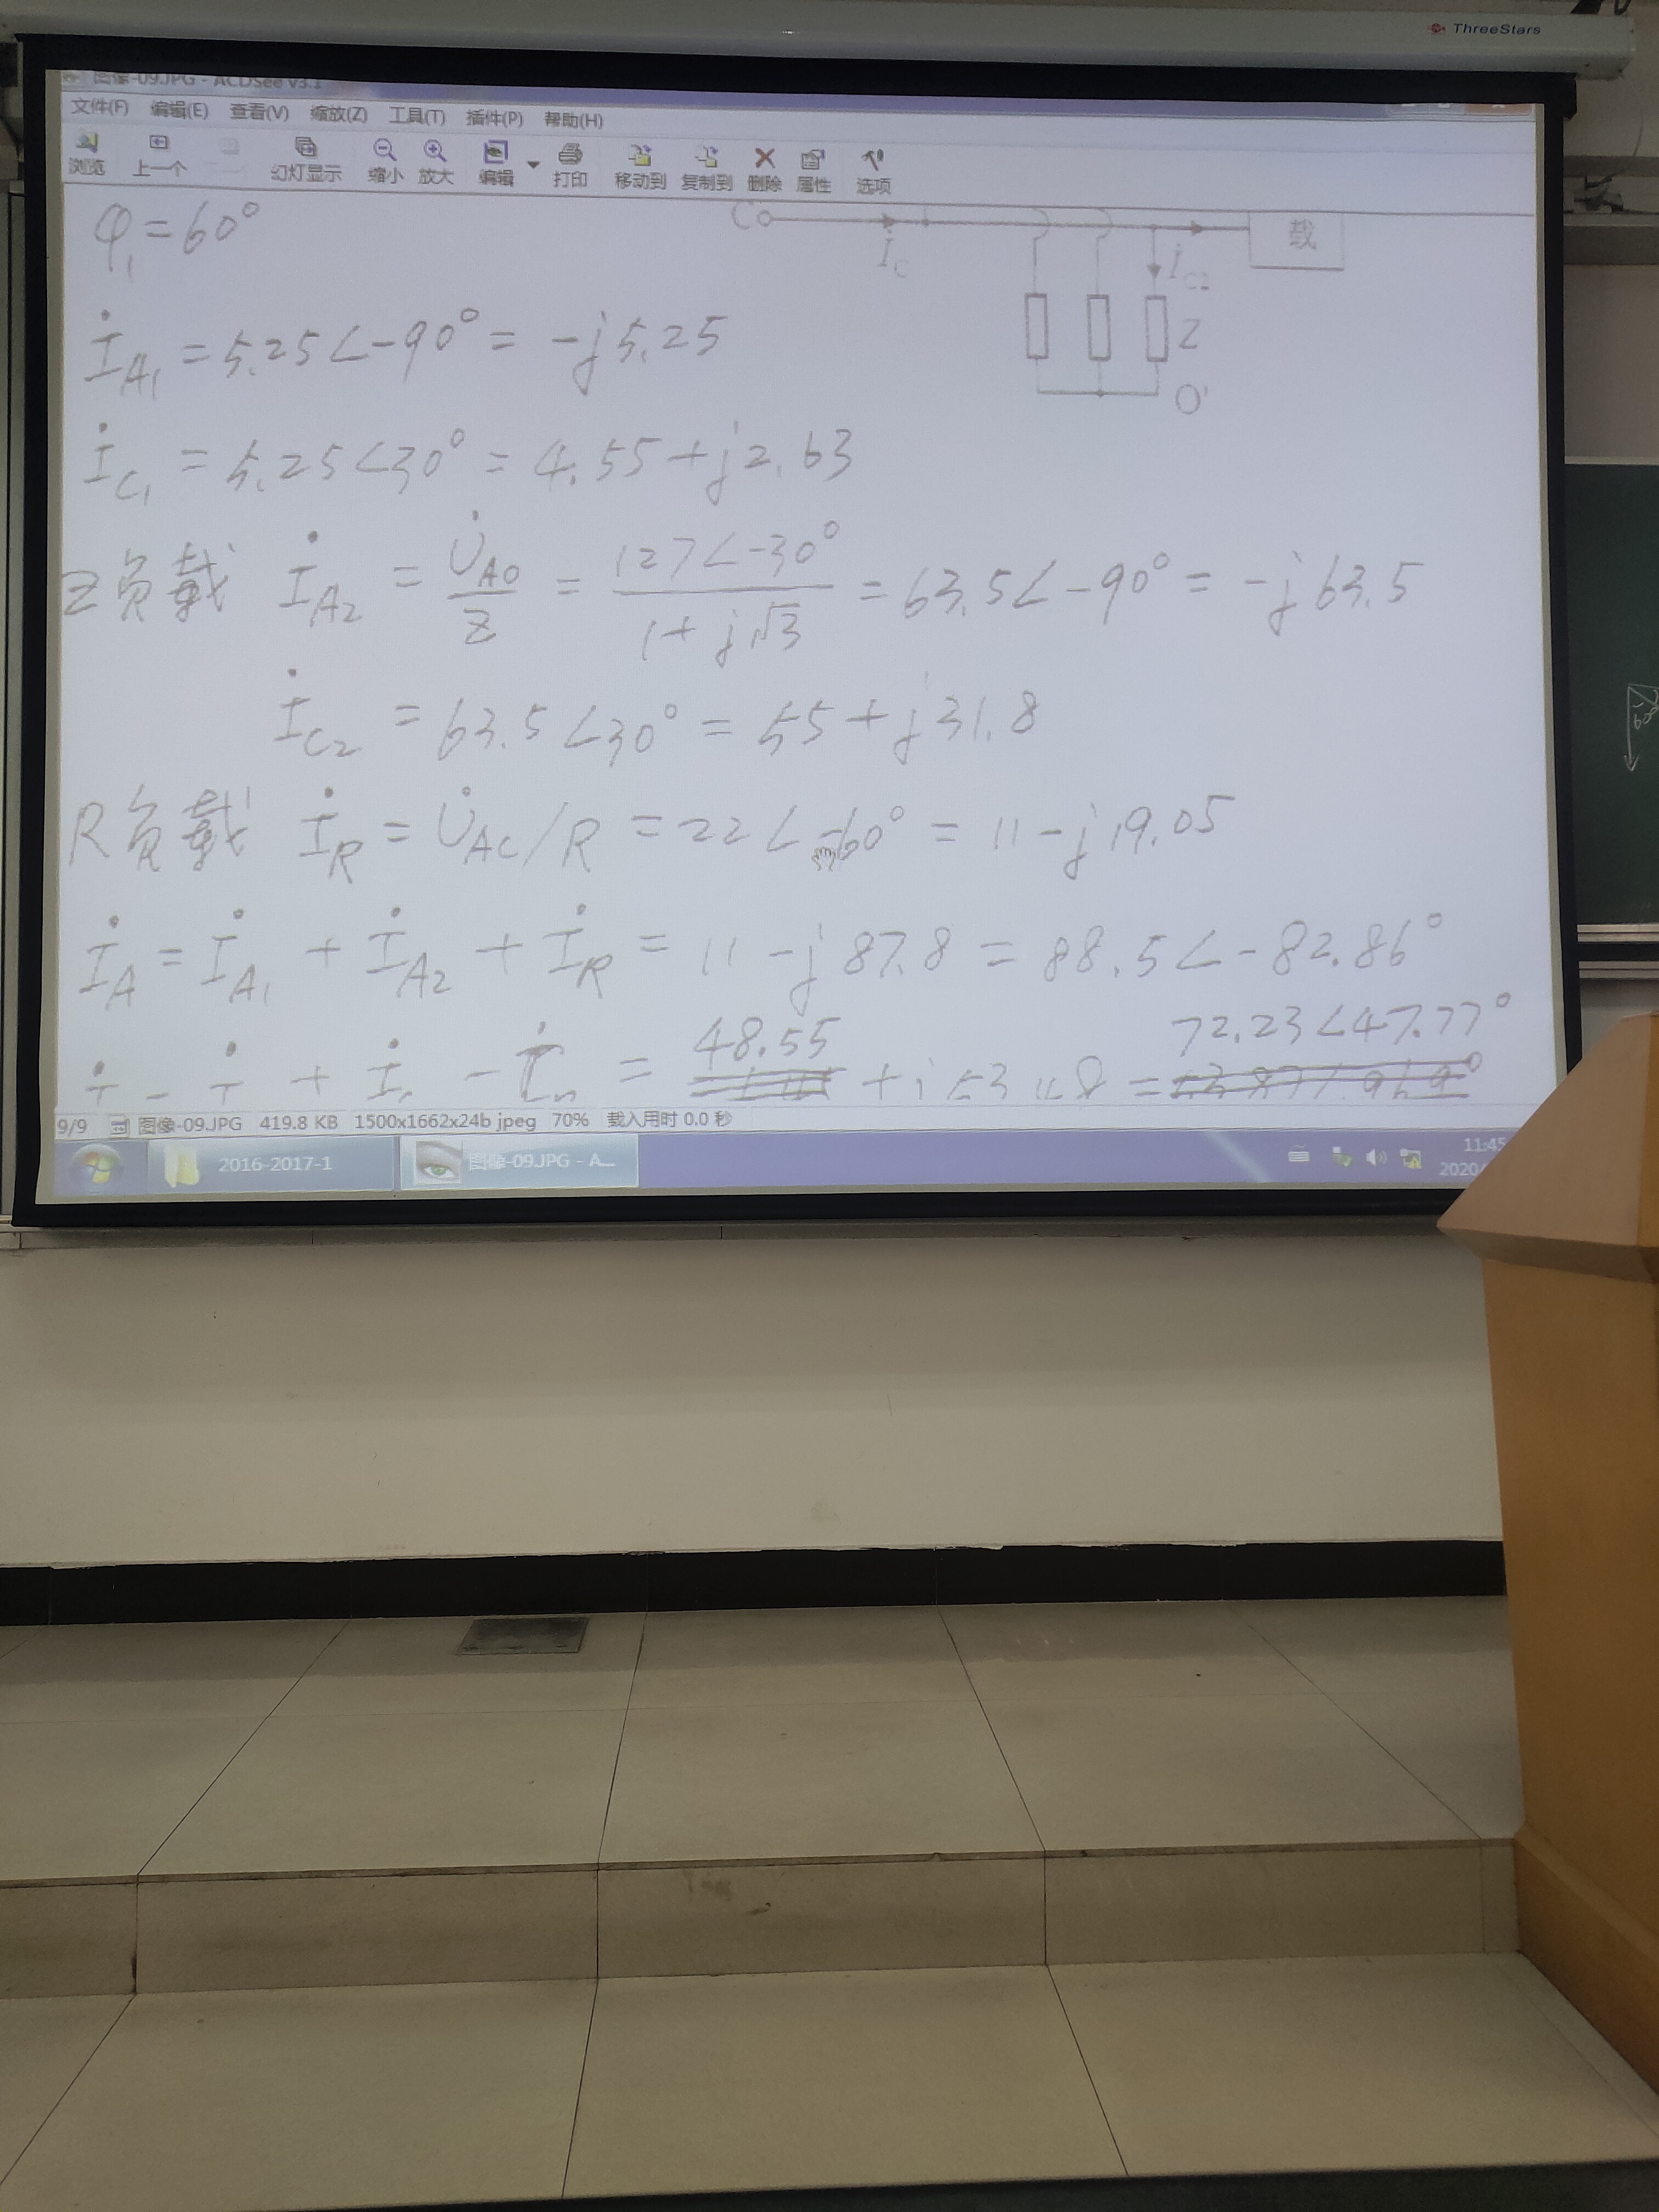 ThreeStars
图像-09.JPG - ACDSee v3.1
文件(F) 编辑(E) 查看(V) 缩放(Z) 工具(T) 插件(P) 帮助(H)
浏览 上一个 幻灯显示 缩小 放大 编辑 打印 移动到 复制到 删除 属性 选项
φ₁=60°
C
İ_C
İ_C2
载
Z
O'
İ_A1 = 5.25∠-90° = -j5.25
İ_C1 = 5.25∠30° = 4.55+j2.63
Z负载 İ_A2 = U̇_AO/Z = 127∠-30°/(1+j√3) = 63.5∠-90° = -j63.5
İ_C2 = 63.5∠30° = 55+j31.8
R负载 İ_R = U̇_AC/R = 22∠-60° = 11-j19.05
İ_A = İ_A1 + İ_A2 + İ_R = 11-j87.8 = 88.5∠-82.86°
= 48.55 + = 72.23∠47.77°
9/9 图像-09.JPG 419.8 KB 1500x1662x24b jpeg 70% 载入用时 0.0 秒
2016-2017-1 图像-09.JPG - A... 11:45
2020